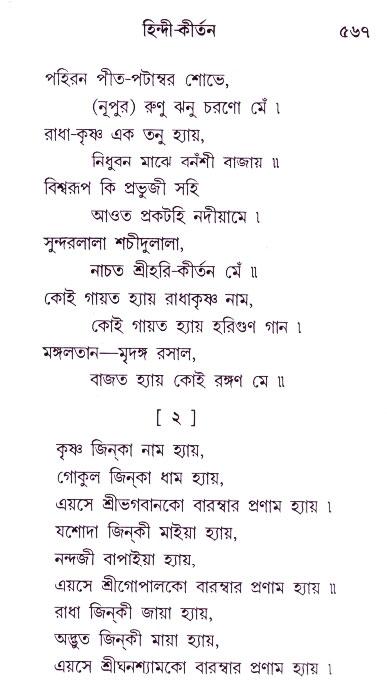 হিন্দী-কীর্তন ৫৬৭
পহিরন পীত-পটাম্বর শোভে,
(নূপুর) রুণু ঝনু চরণো মেঁ ।
রাধা-কৃষ্ণ এক তনু হ্যায়,
নিধুবন মাঝে বনঁশী বাজায় ॥
বিশ্বরূপ কি প্রভুজী সহি
আওত প্রকটহি নদীয়ামে ।
সুন্দরলালা শচীদুলালা,
নাচত শ্রীহরি-কীর্তন মেঁ ॥
কোই গায়ত হ্যায় রাধাকৃষ্ণ নাম,
কোই গায়ত হ্যায় হরিগুণ গান ।
মঙ্গলতান—মৃদঙ্গ রসাল,
বাজত হ্যায় কোই রঙ্গণ মে ॥
[ ২ ]
কৃষ্ণ জিন্‌কা নাম হ্যায়,
গোকুল জিন্‌কা ধাম হ্যায়,
এয়সে শ্রীভগবানকো বারম্বার প্রণাম হ্যায় ।
যশোদা জিন্‌কী মাইয়া হ্যায়,
নন্দজী বাপাইয়া হ্যায়,
এয়সে শ্রীগোপালকো বারম্বার প্রণাম হ্যায় ॥
রাধা জিন্‌কী জায়া হ্যায়,
অদ্ভুত জিন্‌কী মায়া হ্যায়,
এয়সে শ্রীঘনশ্যামকো বারম্বার প্রণাম হ্যায় ।